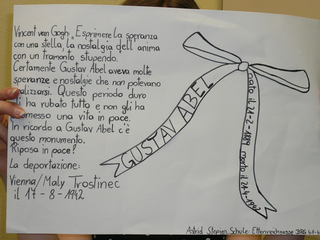 Vincent van Gogh „Esprimere la speranza
con una stella, la nostalgia dell'anima
con un tramonto stupendo.
Certamente Gustav Abel aveva molte
speranze e nostalgie che non potevano
realizzarsi. Questo periodo duro
gli ha rubato tutto e non gli ha
permesso una vita in pace.
In ricordo a Gustav Abel c'è
questo monumento.
Riposa in pace!
La deportazione:
Vienna/Maly Trostinec
il 17-8-1942
GUSTAV ABEL
nato il 24-2-
morto il
Schule